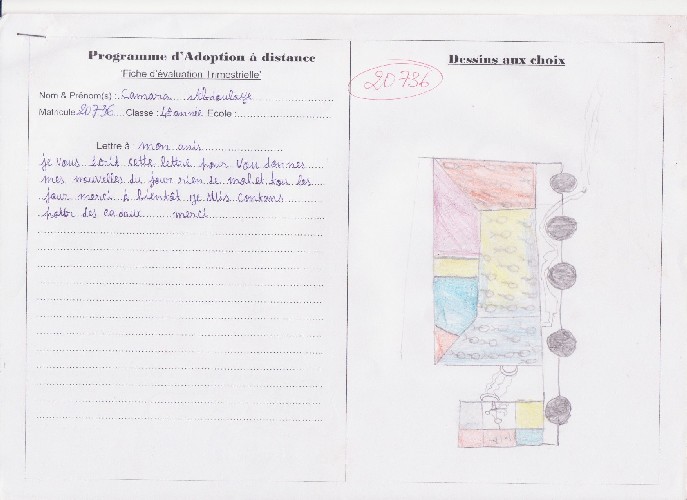 Programme d'Adoption à distance
'Fiche d'évaluation Trimestrielle'
Nom & Prénom(s) : Camara Abdoulaye
Matricule 20736 Classe : 4e année Ecole :
Lettre à : mon ami
je vous écrit cette lettre pour vou donnes
mes nouvelles du jour rien de mal et tou les
jour merci à bientôt je suis contans
pour des cadeau merci
Dessins aux choix
20736